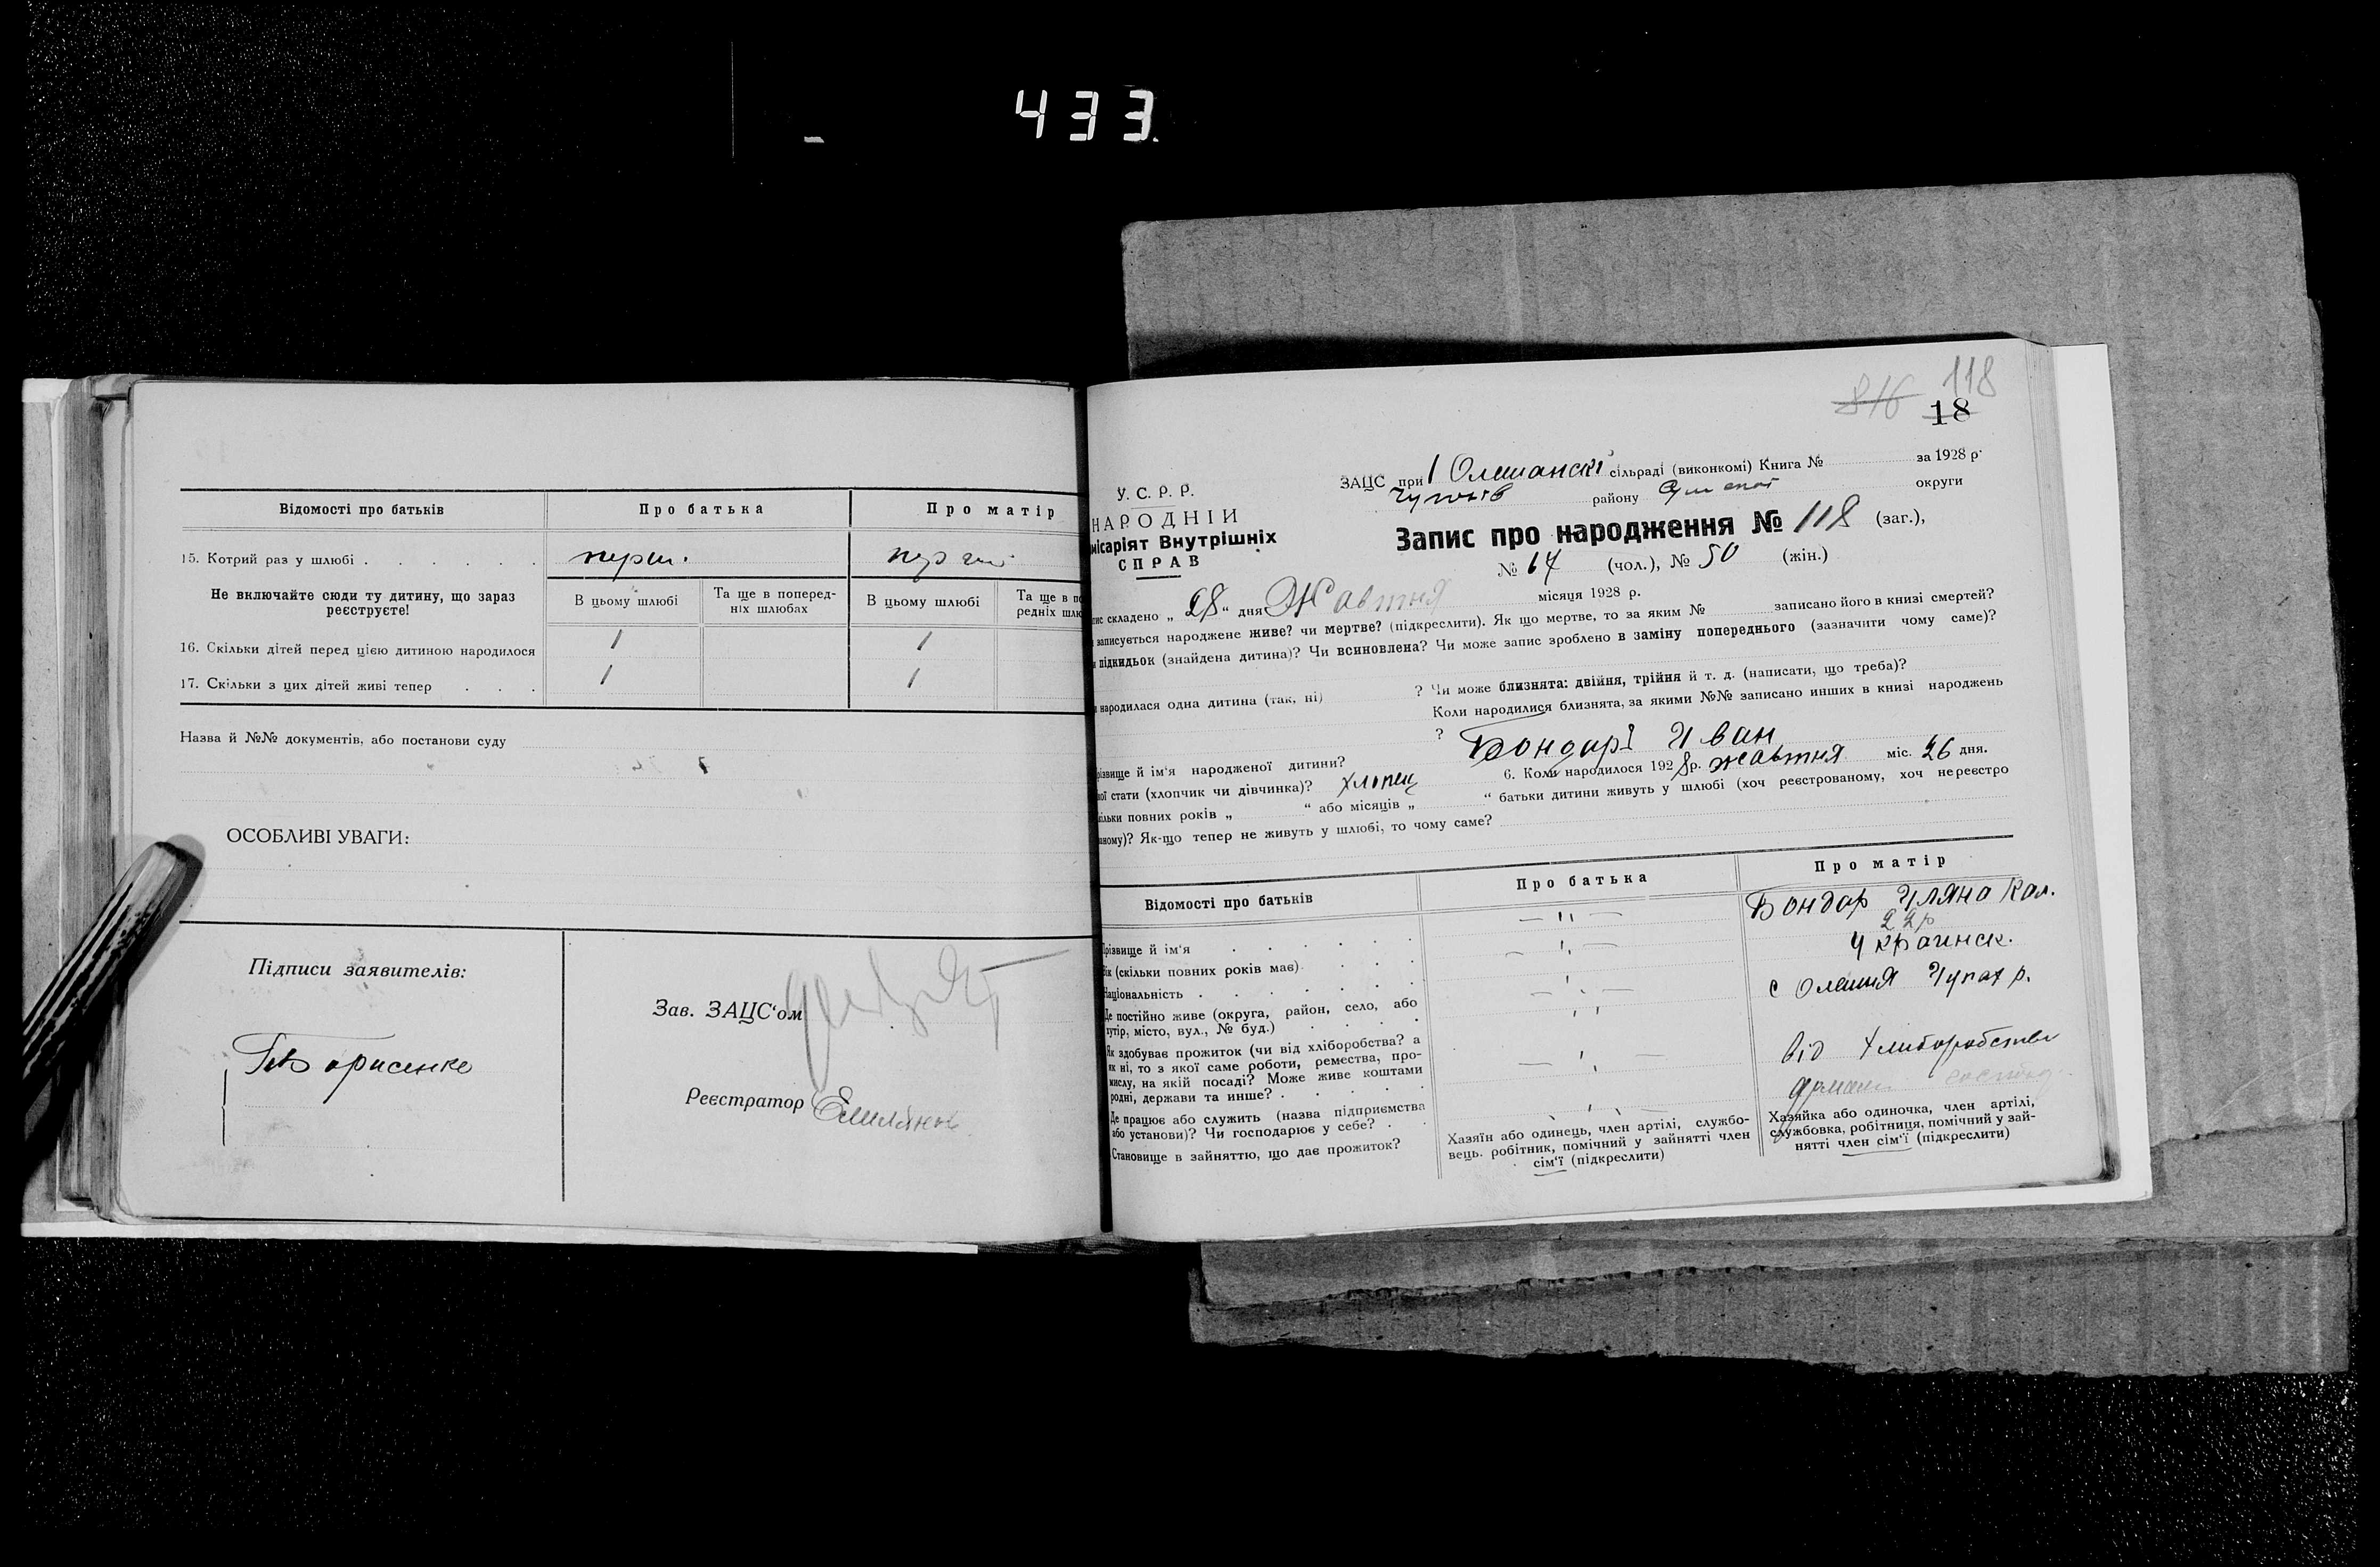 433.
Відомості про батьків
Про батька
Про матір
15. Котрий раз у шлюбі . . . . . .
перш.
Не включайте сюди ту дитину, що зараз
реєструєте!
В цьому шлюбі
Та ще в поперед-
ніх шлюбах
В цьому шлюбі
Та ще в по
редніх шлю
16. Скільки дітей перед цією дитиною народилося
1
1
17. Скільки з цих дітей живі тепер . . .
1
1
Назва й №№ документів, або постанови суду
ОСОБЛИВІ УВАГИ:
Підписи заявителів:
Борисенко
Зав. ЗАЦС'ом
Реєстратор
816 118
18
У. С. Р. Р.
НАРОДНІЙ
місаріят Внутрішніх
СПРАВ
ЗАЦС при 1 Олешанскі сільраді (виконкомі) Книга № за 1928 р.
району округи
Запис про народження № 118 (заг.),
№ (чол.), № 50 (жін.)
пис складено „ 28 “ дня Жовтня місяця 1928 р.
записується народжене живе? чи мертве? (підкреслити). Як що мертве, то за яким № записано його в книзі смертей?
и підкидьок (знайдена дитина)? Чи всиновлена? Чи може запис зроблено в заміну попереднього (зазначити чому саме)?
и народилася одна дитина (так, ні) ? Чи може близнята: двійня, трійня й т. д. (написати, що треба)?
Коли народилися близнята, за якими №№ записано инших в книзі народжень
?
різвище й ім'я народженої дитини? Бондарь Иван
кої стати (хлопчик чи дівчинка)? хлопец 6. Коли народилося 1928 р. жовтня міс. 26 дня.
кільки повних років „ “ або місяців „ “ батьки дитини живуть у шлюбі (хоч реєстрованому, хоч нереєстро
аному)? Як-що тепер не живуть у шлюбі, то чому саме?
Відомості про батьків
Про батька
Про матір
Прізвище й ім'я . . . . . .
Бондар Уляна Кал.
Вік (скільки повних років має) . . .
22 р
Національність . . . . . .
Украинск.
Де постійно живе (округа, район, село, або
хутір, місто, вул., № буд.) . . . .
с Олешня
Як здобуває прожиток (чи від хліборобства? а
як ні, то з якої саме роботи, ремества, про-
мислу, на якій посаді? Може живе коштами
родні, держави та инше? . . . . .
від хлиборобства
Де працює або служить (назва підприємства
або установи)? Чи господарює у себе? . .
Становище в зайняттю, що дає прожиток?
Хазяїн або одинець, член артілі, службо-
вець, робітник, помічний у зайнятті член
сім'ї (підкреслити)
Хазяйка або одиночка, член артілі,
службовка, робітниця, помічний у зай-
нятті член сім'ї (підкреслити)